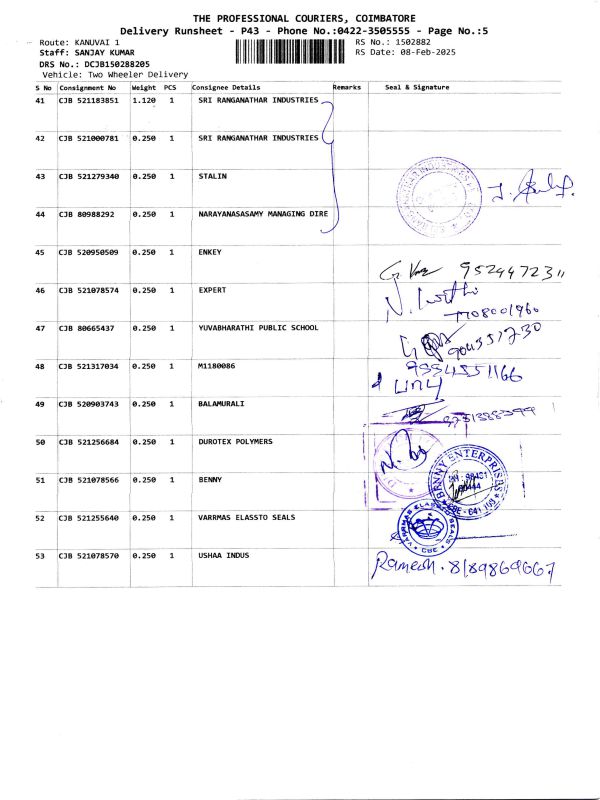 THE PROFESSIONAL COURIERS, COIMBATORE
Delivery Runsheet - P43 - Phone No.:0422-3505555 - Page No.:5
Route: KANUVAI 1 RS No.: 1502882
Staff: SANJAY KUMAR RS Date: 08-Feb-2025
DRS No.: DCJB150288205
Vehicle: Two Wheeler Delivery
S No Consignment No Weight PCS Consignee Details Remarks Seal & Signature
41 CJB 521183851 1.120 1 SRI RANGANATHAR INDUSTRIES
42 CJB 521000781 0.250 1 SRI RANGANATHAR INDUSTRIES
43 CJB 521279340 0.250 1 STALIN
44 CJB 80988292 0.250 1 NARAYANASASAMY MANAGING DIRE
45 CJB 520950509 0.250 1 ENKEY
46 CJB 521078574 0.250 1 EXPERT
47 CJB 80665437 0.250 1 YUVABHARATHI PUBLIC SCHOOL
48 CJB 521317034 0.250 1 M1180086
49 CJB 520903743 0.250 1 BALAMURALI
9751388399
50 CJB 521256684 0.250 1 DUROTEX POLYMERS
51 CJB 521078566 0.250 1 BENNY
BENNY ENTERPRISES
52 CJB 521255640 0.250 1 VARRMAS ELASSTO SEALS
VARRMAS ELASSTO SEALS
CBE
53 CJB 521078570 0.250 1 USHAA INDUS
Ramesh. 8189869667